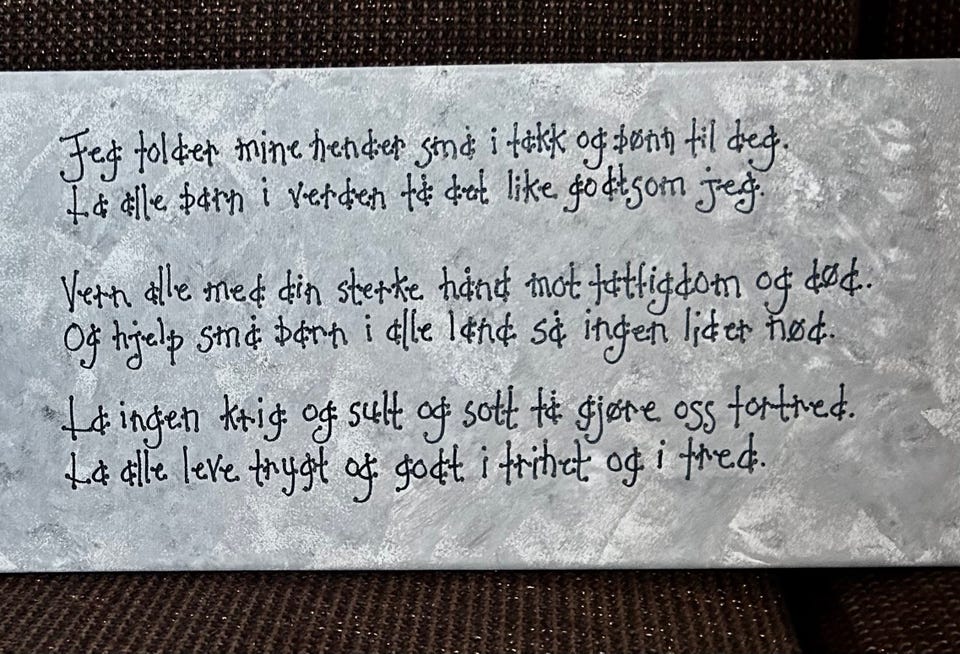 Jeg folder mine hender små i takk og bønn til deg.
La alle barn i verden få det like godt som jeg.
Vern alle med din sterke hånd mot fattigdom og død.
Og hjelp små barn i alle land så ingen lider nød.
La ingen krig og sult og sott få gjøre oss fortred.
La alle leve trygt og godt i frihet og i fred.